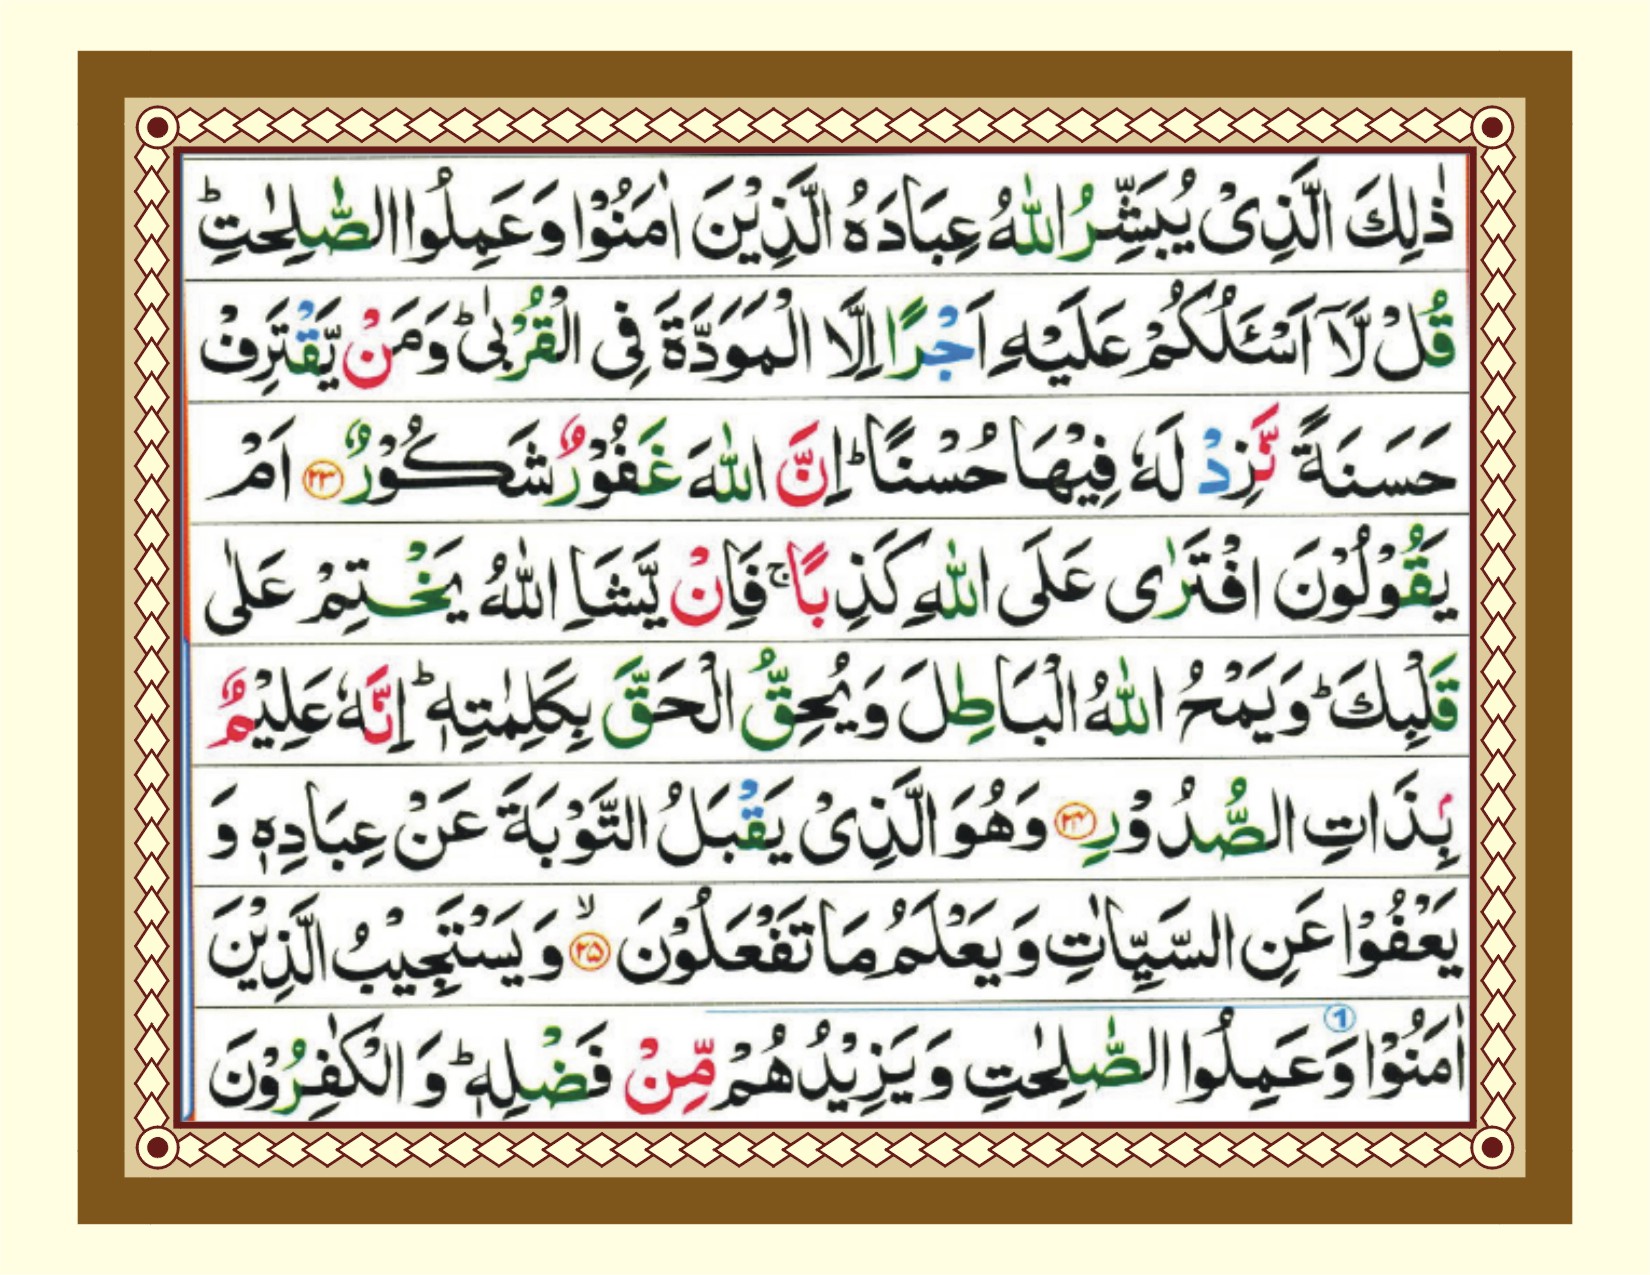 ذٰلِكَ الَّذِیْ یُبَشِّرُ اللّٰهُ عِبَادَهُ الَّذِیْنَ اٰمَنُوْا وَ عَمِلُوا الصّٰلِحٰتِؕ
قُلْ لَّاۤ اَسْـَٔلُكُمْ عَلَیْهِ اَجْرًا اِلَّا الْمَوَدَّةَ فِی الْقُرْبٰیؕ وَ مَنْ یَّقْتَرِفْ
حَسَنَةً نَّزِدْ لَهٗ فِیْهَا حُسْنًاؕ اِنَّ اللّٰهَ غَفُوْرٌ شَكُوْرٌ ۲۳ اَمْ
یَقُوْلُوْنَ افْتَرٰی عَلَی اللّٰهِ كَذِبًاۚ فَاِنْ یَّشَاِ اللّٰهُ یَخْتِمْ عَلٰی
قَلْبِكَؕ وَ یَمْحُ اللّٰهُ الْبَاطِلَ وَ یُحِقُّ الْحَقَّ بِكَلِمٰتِهٖؕ اِنَّهٗ عَلِیْمٌۢ
بِذَاتِ الصُّدُوْرِ ۲۴ وَ هُوَ الَّذِیْ یَقْبَلُ التَّوْبَةَ عَنْ عِبَادِهٖ وَ
یَعْفُوْا عَنِ السَّیِّاٰتِ وَ یَعْلَمُ مَا تَفْعَلُوْنَۙ ۲۵ وَ یَسْتَجِیْبُ الَّذِیْنَ
اٰمَنُوْا وَ عَمِلُوا الصّٰلِحٰتِ وَ یَزِیْدُهُمْ مِّنْ فَضْلِهٖؕ وَ الْكٰفِرُوْنَ
1